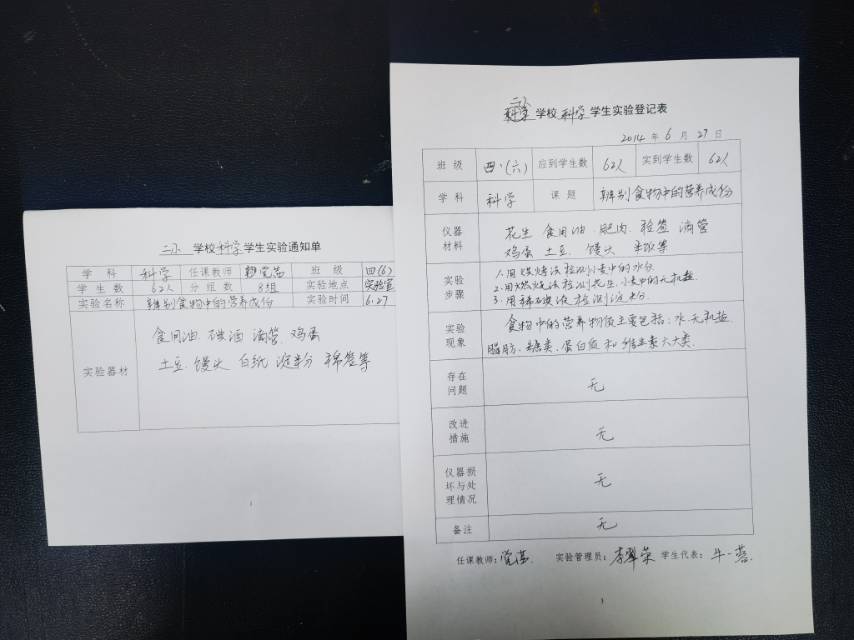 二小 学校科学学生实验通知单
学 科 科学 任课教师 班 级 四(6)
学 生 数 62人 分 组 数 8组 实验地点 实验室
实验名称 辨别食物中的营养成份 实验时间 6.27
食用油 碘酒 滴管 鸡蛋
实验器材
土豆 馒头 白纸 淀粉 棉签等
1
二小 学校 科学 学生实验登记表
2014 年 6 月 27 日
班 级 四·(六) 应到学生数 62人 实到学生数 62人
学 科 科学 课 题 辨别食物中的营养成份
仪器
材料
花生 食用油 肥肉 滴管
鸡蛋 土豆 馒头 等
实验
步骤
1.用烘烤法检测小麦中的水分
2.用燃烧法检测花生、小麦中的无机盐
3.用稀碘液检测淀粉
实验
现象
食物中的营养物质主要包括:水、无机盐
脂肪、糖类、蛋白质和维生素六大类.
存在
问题
无
改进
措施
无
仪器损
坏与处
理情况
无
备注 无
任课教师: 实验管理员:李翠荣 学生代表:牛一蓉
1